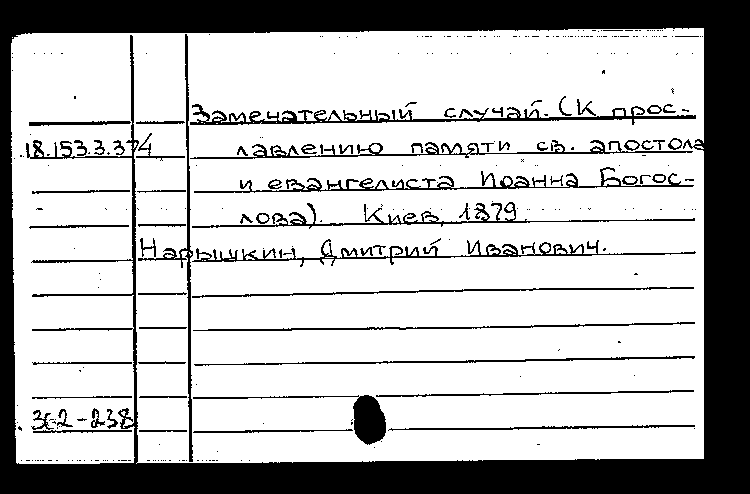 Замечательный случай. (К прос-
18.153.3.374 лавлению памяти св. апостола
и евангелиста Иоанна Богос-
лова). Киев, 1879.
Нарышкин, Дмитрий Иванович.
362-238